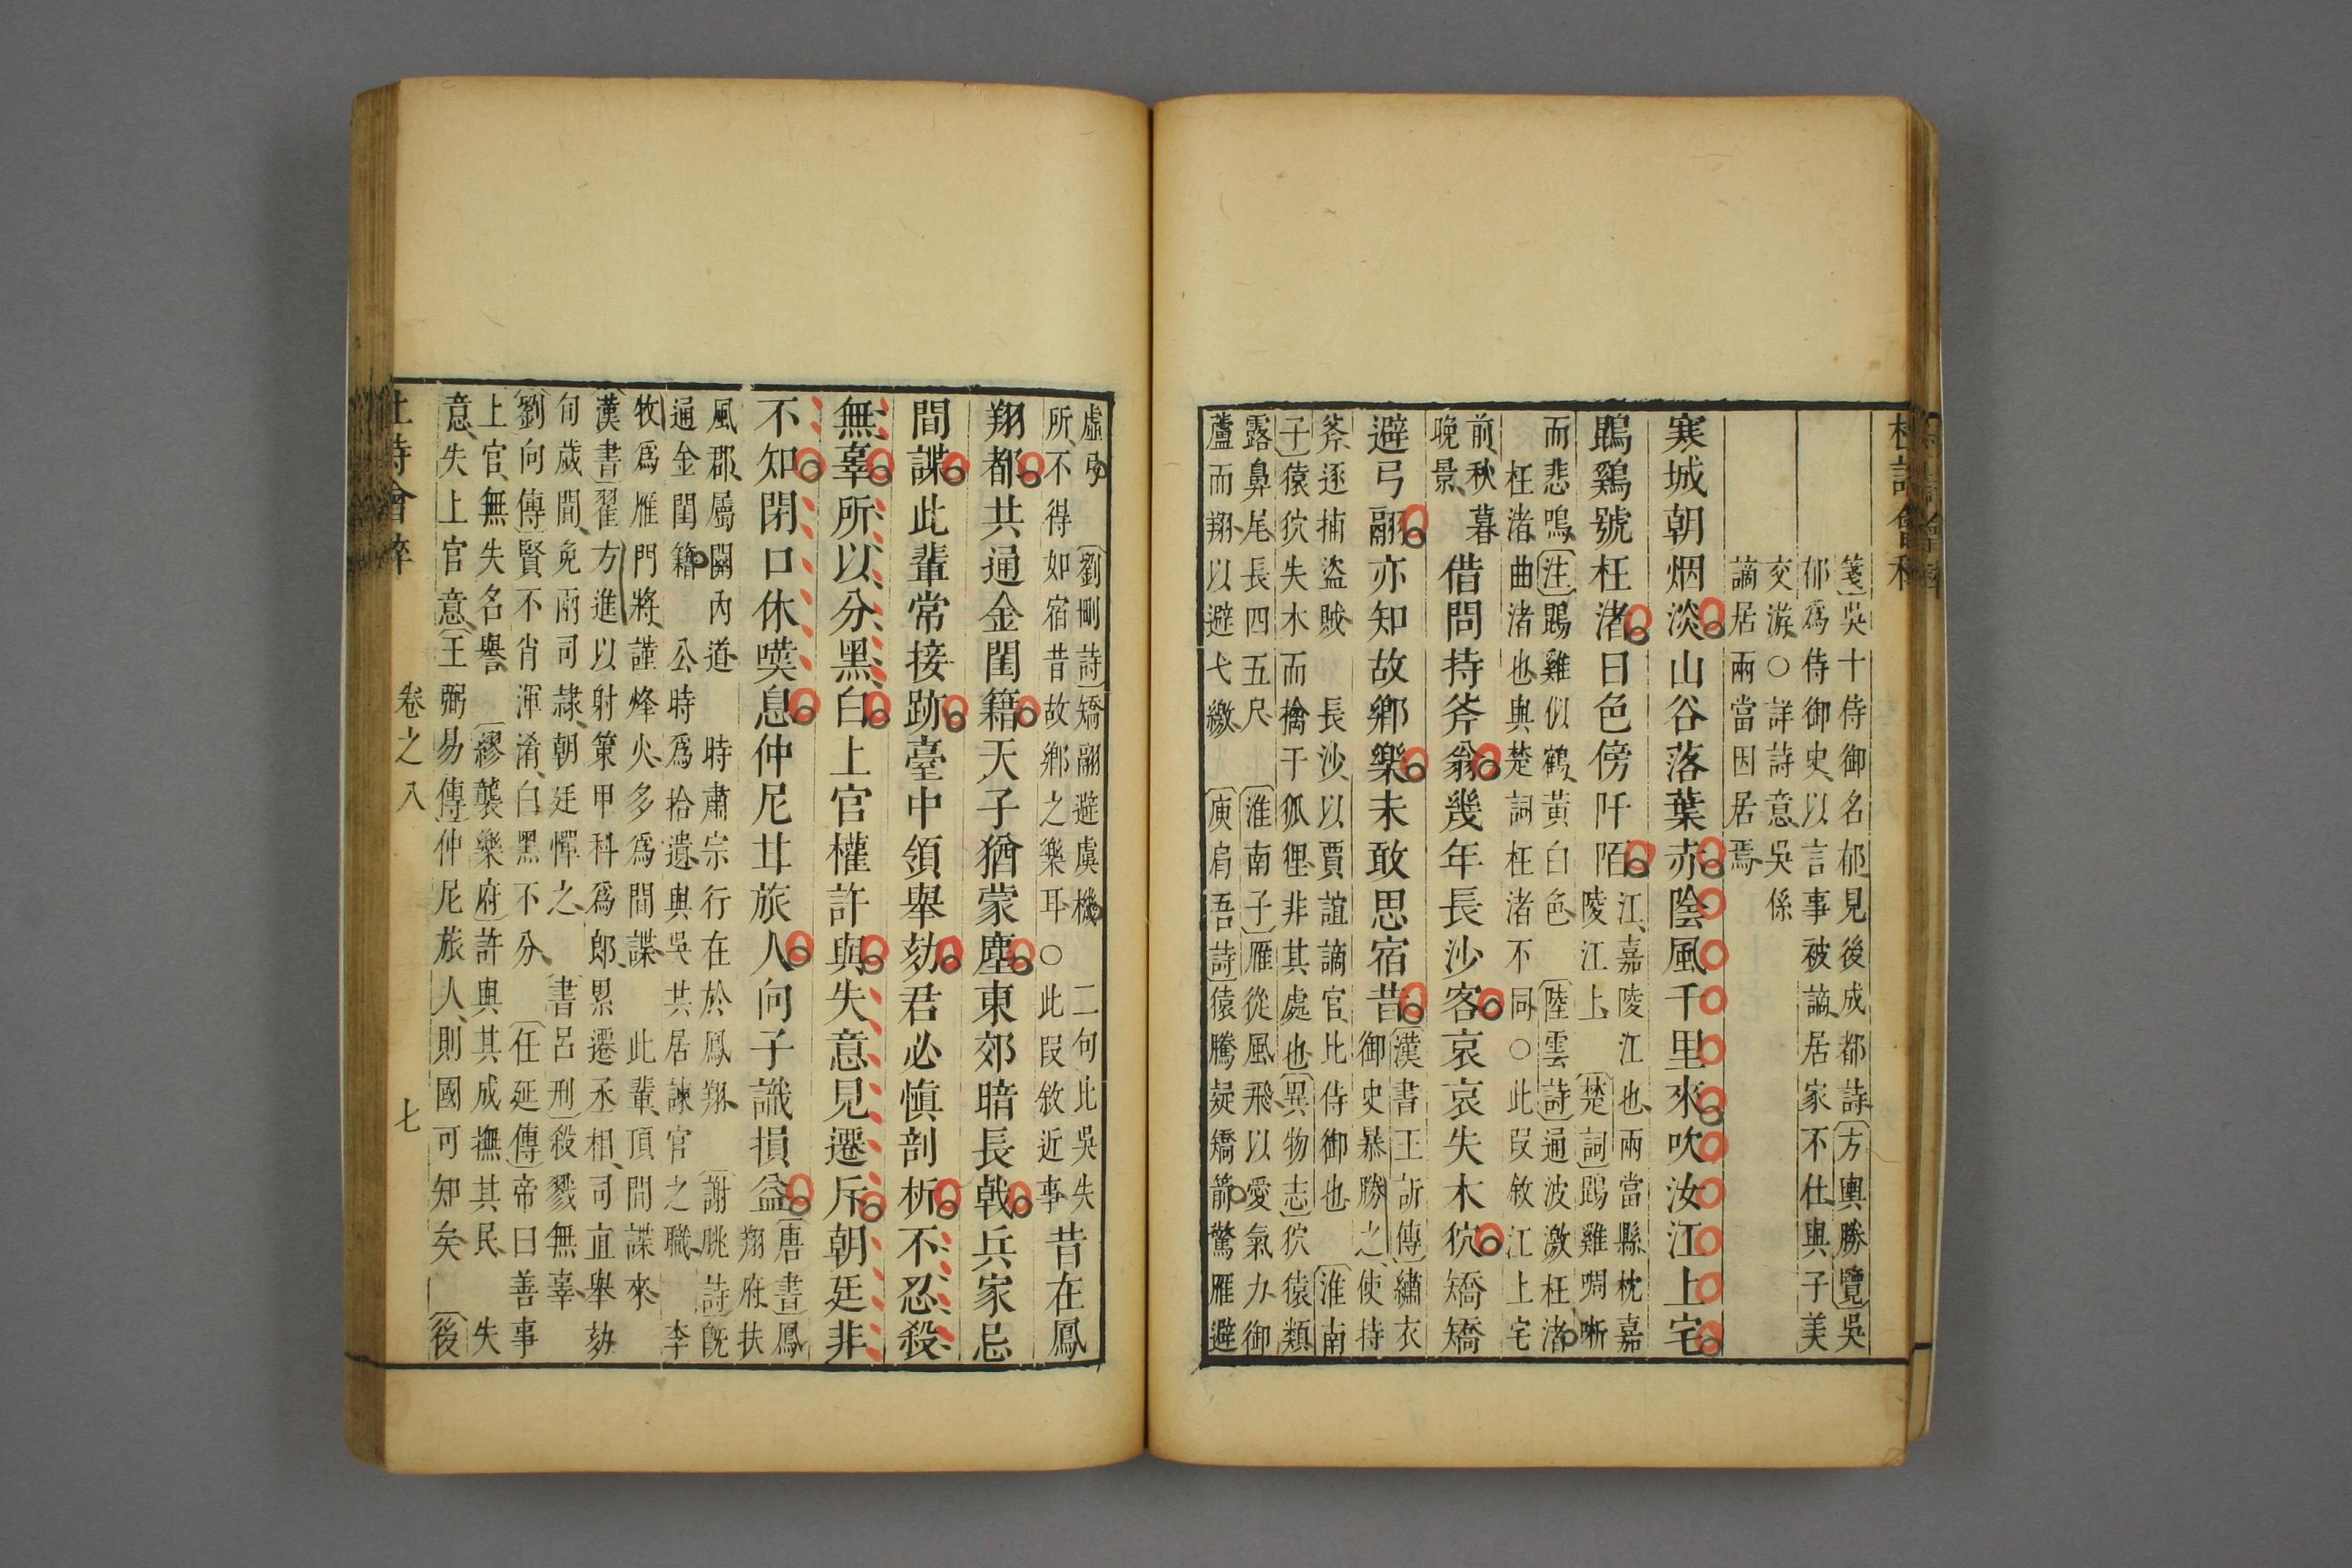 杜詩會稡
箋吳十侍御名郁見後成都詩方輿勝覽吳
郁爲侍御史以言事被謫居家不仕與子美
交游○詳詩意吳係
謫居兩當因居焉
寒城朝烟淡山谷落葉赤陰風千里來吹汝江上宅
鵾鷄號枉渚日色傍阡陌
江嘉陵江也兩當縣枕嘉
陵江上 楚詞鵾雞啁哳
而悲鳴注鵾雞似鶴黃白色 陸雲詩通波激枉渚
枉渚曲渚也與楚詞枉渚不同○此叚敘江上宅
前秋暮
晚景
借問持斧翁幾年長沙客哀哀失木狖矯矯
避弓翮亦知故鄉樂未敢思宿昔
漢書王訢傳繡衣
御史暴勝之使持
斧逐捕盜賊 長沙以賈誼謫官比侍御也 淮南
子猿狖失木而擒于狐狸非其處也異物志狖猿類
露鼻尾長四五尺 淮南子雁從風飛以愛氣力御
蘆而翔以避弋繳 庾肩吾詩猿騰疑矯箭驚雁避
虛弓 劉刪詩矯翮避虞機 二句比吳失
所不得如宿昔故鄉之樂耳○此叚敘近事
昔在鳳
翔都共通金閨籍天子猶蒙塵東郊暗長戟兵家忌
間諜此輩常接跡臺中領舉劾君必慎剖析不忍殺
無辜所以分黑白上官權許與失意見遷斥朝廷非
不知閉口休嘆息仲尼甘旅人向子識損益
唐書鳳
翔府扶
風郡屬關內道 時肅宗行在於鳳翔 謝朓詩旣
通金閨籍 公時爲拾遺與吳共居諫官之職 李
牧爲雁門將謹烽火多爲間諜 此輩頂間諜來
漢書翟方進以射策甲科爲郎累遷丞相司直舉劾
旬歲間免兩司隷朝廷憚之 書呂刑殺戮無辜
劉向傳賢不肖渾淆白黑不分 任延傳帝曰善事
上官無失名譽 繆襲樂府許與其成撫其民 失
意失上官意王弼易傳仲尼旅人則國可知矣 後
杜詩會稡 卷之八 七